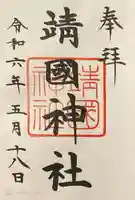 奉拝
靖國神社
靖國神社
令和六年五月十八日